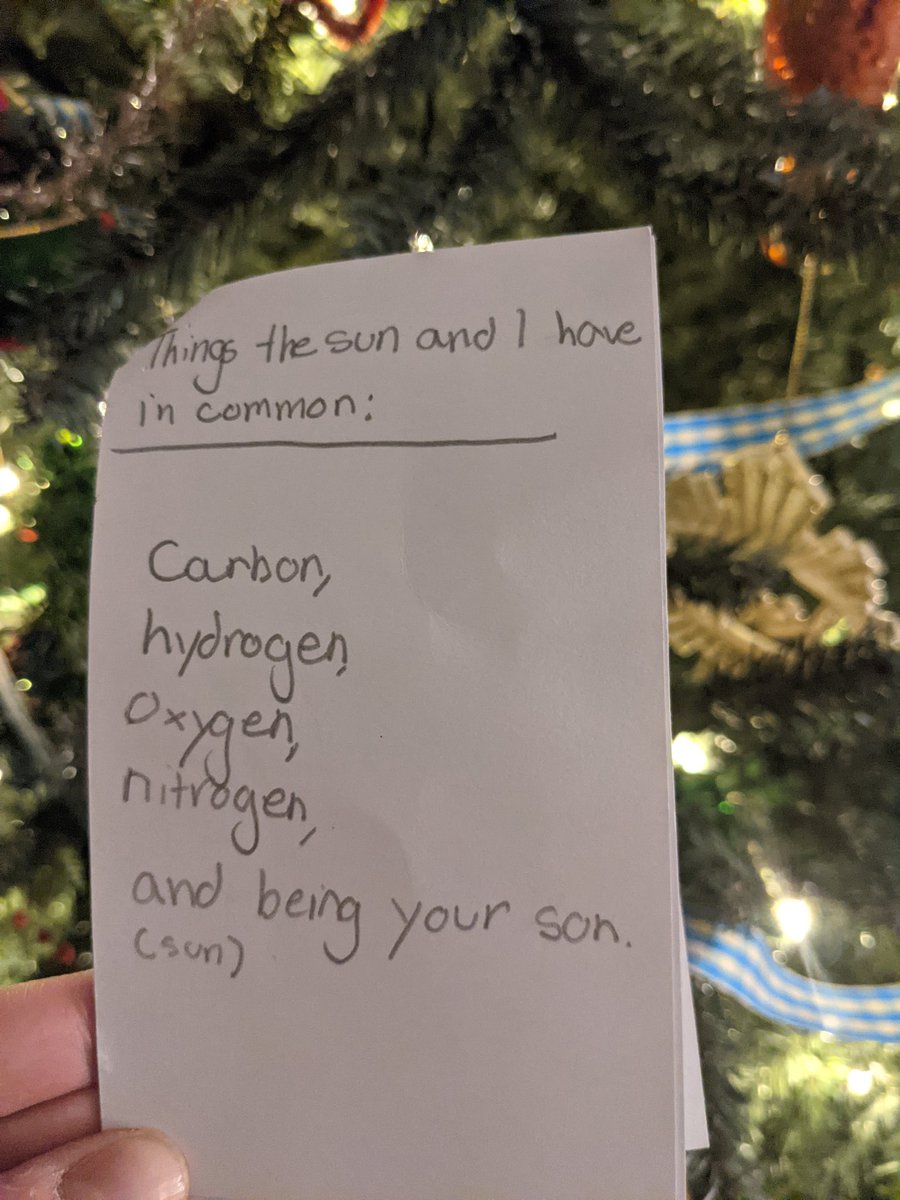 Things the sun and I have
in common:
Carbon,
hydrogen,
Oxygen,
nitrogen,
and being your son.
(sun)